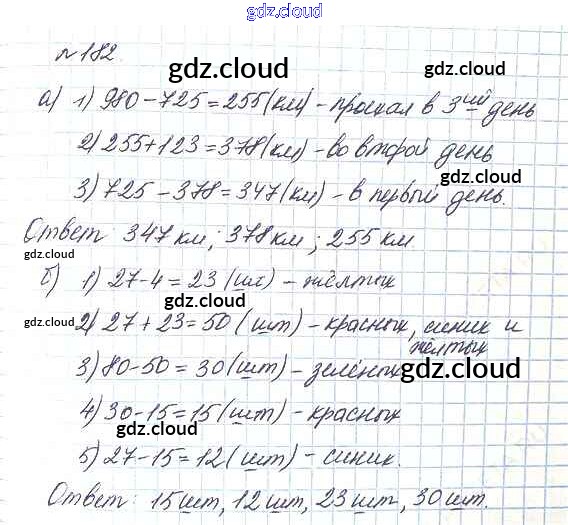 gdz.cloud
№ 182.
gdz.cloud
а) 1) 980-725=255(км) - проехал в 3ий день
gdz.cloud
2) 255+123=378(км) - во второй день
gdz.cloud
3) 725-378=347(км) - в первый день.
Ответ: 347 км; 378 км; 255 км.
gdz.cloud
б) 1) 27-4=23 (шт) - жёлтых
gdz.cloud
gdz.cloud
2) 27+23=50 (шт) - красных, синих и жёлтых
3) 80-50=30(шт) - зелёных
gdz.cloud
4) 30-15=15(шт) - красных
gdz.cloud
5) 27-15=12(шт) - синих.
Ответ: 15шт, 12шт, 23шт, 30шт.